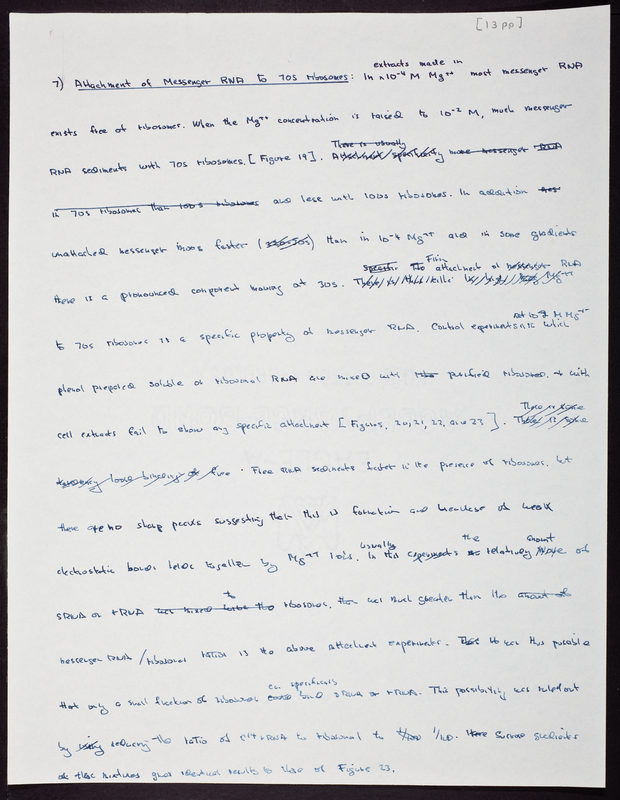 [13 pp]
extracts made in
7) Attachment of Messenger RNA to 70s ribosomes: In 10-4 M Mg++ most messenger RNA
exists free of ribosomes. When the Mg++ concentration is raised to 10-2 M, much messenger
There is usually
RNA sediments with 70s ribosomes. [Figure 19]. more messenger RNA
in 70s ribosomes than 100s ribosomes and less with 100s ribosomes. In addition
unattached messenger moves faster than in 10-4 Mg++ and in some gradients
there is a pronounced component moving at 30s. specific The Firm attachment of messenger RNA
to 70s ribosomes is a specific property of messenger RNA. Control experiments at 10-2 M Mg++ in which
phenol prepared soluble or ribosomal RNA are mixed with purified ribosomes or with
There is some
cell extracts fail to show any specific attachment [Figures, 20, 21, 22, and 23].
Free RNA sediments faster in the presence of ribosomes, but
there are no sharp peaks suggesting that this is formation and breakage of weak
electrostatic bonds held together by Mg++ ions. Usually in this experiments the relatively amount of
sRNA or rRNA was mixed with the to ribosomes, then was much greater than the amount of
messenger RNA / ribosomal ratio in the above attachment experiments. It was thus possible
that only a small fraction of ribosomes can specifically bind sRNA or rRNA. This possibility was ruled out
by using reducing the ratio of C14 rRNA to ribosomal to 1/100. Sucrose gradients
of these mixtures gave identical results to those of Figure 23.